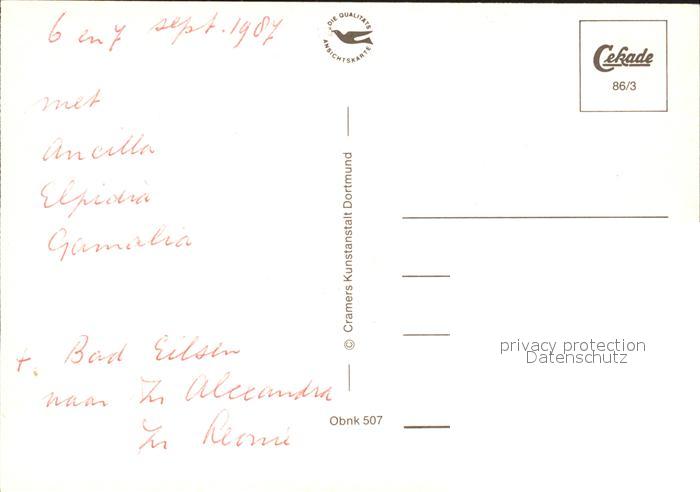 6 en 7 sept. 1987
met
Ancilla
Elpidia
Gamalia
+. Bad Eilsen
naar Zr Alexandra
Zr Leonie
DIE QUALITÄTS
ANSICHTSKARTE
© Cramers Kunstanstalt Dortmund
Obnk 507
Cekade
86/3
privacy protection
Datenschutz